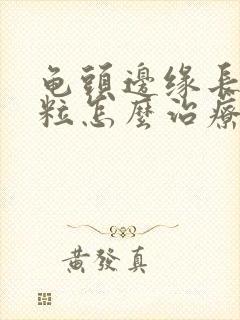 龟頭邊缘長
粒怎麼治療
黃發真